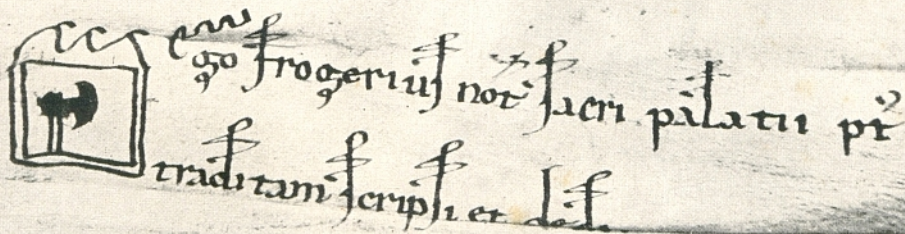 ego frogerius not sacri palatii pt
traditam scripsi et